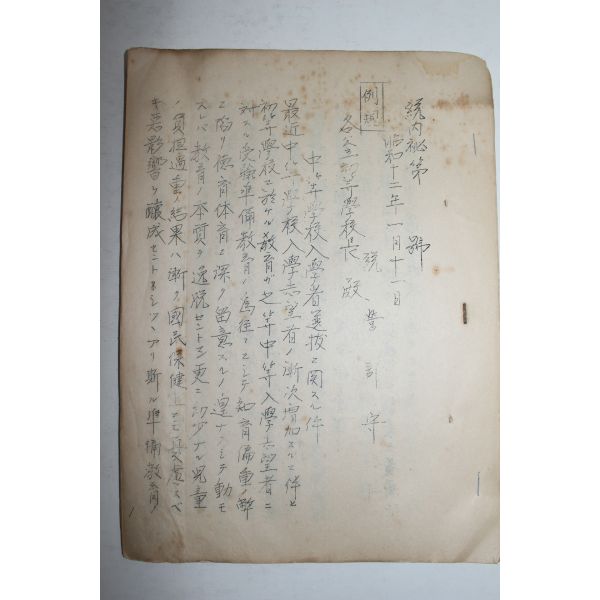 統内秘第　　　號
昭和十二年一月十一日
例規
統營郡守
各公立初等學校長殿
中等學校入學者選拔ニ関スル件
最近中等學校入學志望者ノ漸次増加スルニ伴ヒ
初等學校ニ於ケル教育ガ之等中等入學志望者ニ
対スル受験準備教育ノ為往々ニシテ知育偏重ノ弊
ニ陥リ徳育体育ニ深ク留意スルノ遑ナクシテ動モ
スレバ教育ノ本質ヲ逸脱セントシ更ニ幼少ナル児童
ノ負担過重ノ結果ハ漸ク國民保健上ニモ憂慮スベ
キ悪影響ヲ醸成セントシツツアリ斯ル準備教育ノ